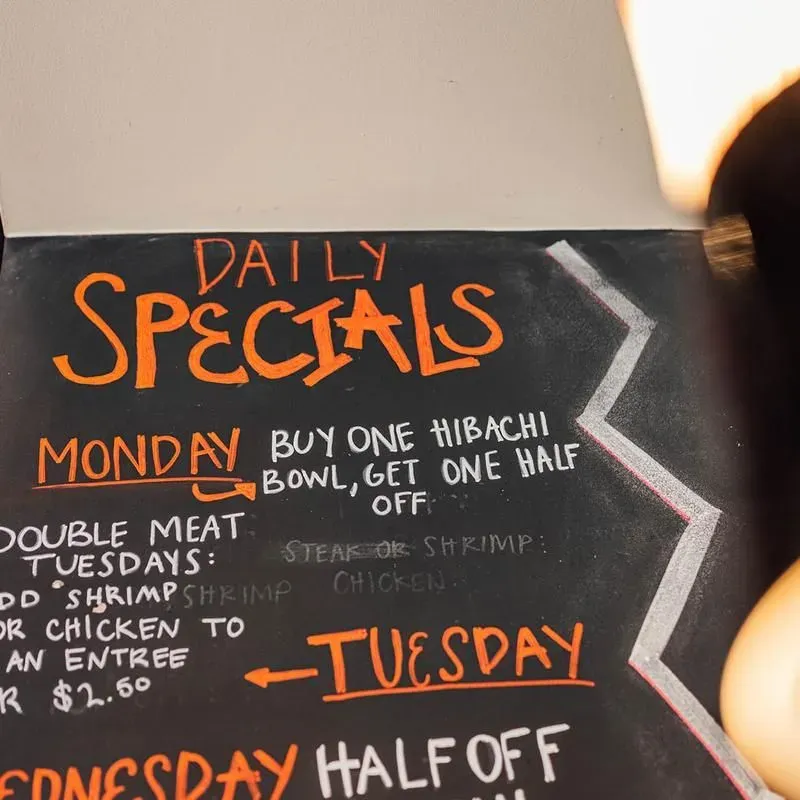 DAILY
SPECIALS
MONDAY
BUY ONE HIBACHI
BOWL, GET ONE HALF
OFF
STEAK OR SHRIMP:
CHICKEN
TUESDAY
DOUBLE MEAT
TUESDAYS:
DD SHRIMP SHRIMP
OR CHICKEN TO
AN ENTREE
R $2.50
EDNESDAY HALF OFF